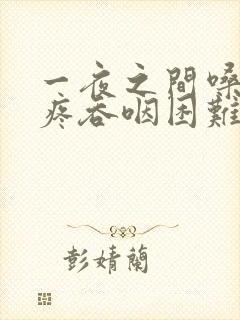 一夜之間嗓
疼吞咽困難
彭婧蘭